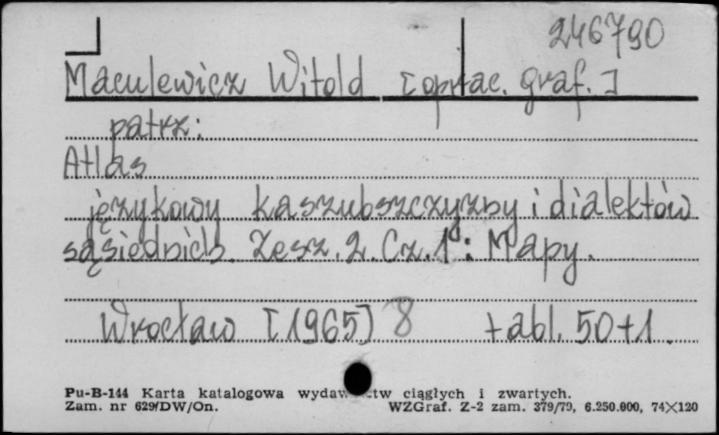 246790
Maculewicz Witold [oprac. graf.]
patrz:
Atlas
językowy kaszubszczyzny i dialektów
sąsiednich. Zesz. 2. Cz. 1: Mapy.
Wrocław [1965] 8 tabl. 50+1.
Pu-B-144 Karta katalogowa ciągłych i zwartych.
Zam. nr 629/DW/On. WZGraf. Z-2 zam. 379/79, 6.250.000, 74×120